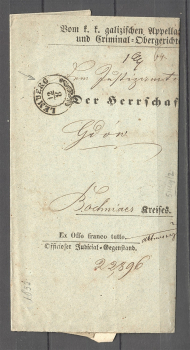 Vom k. k. galizischen Appella
und Criminal-Obergerichte
Dem Justizamte
LEMBERG
Der Herrschaf
Gdów
Bochnier Kreises.
Ex Offo franco tutto.
Officioser Judicial-Gegenstand.
22896